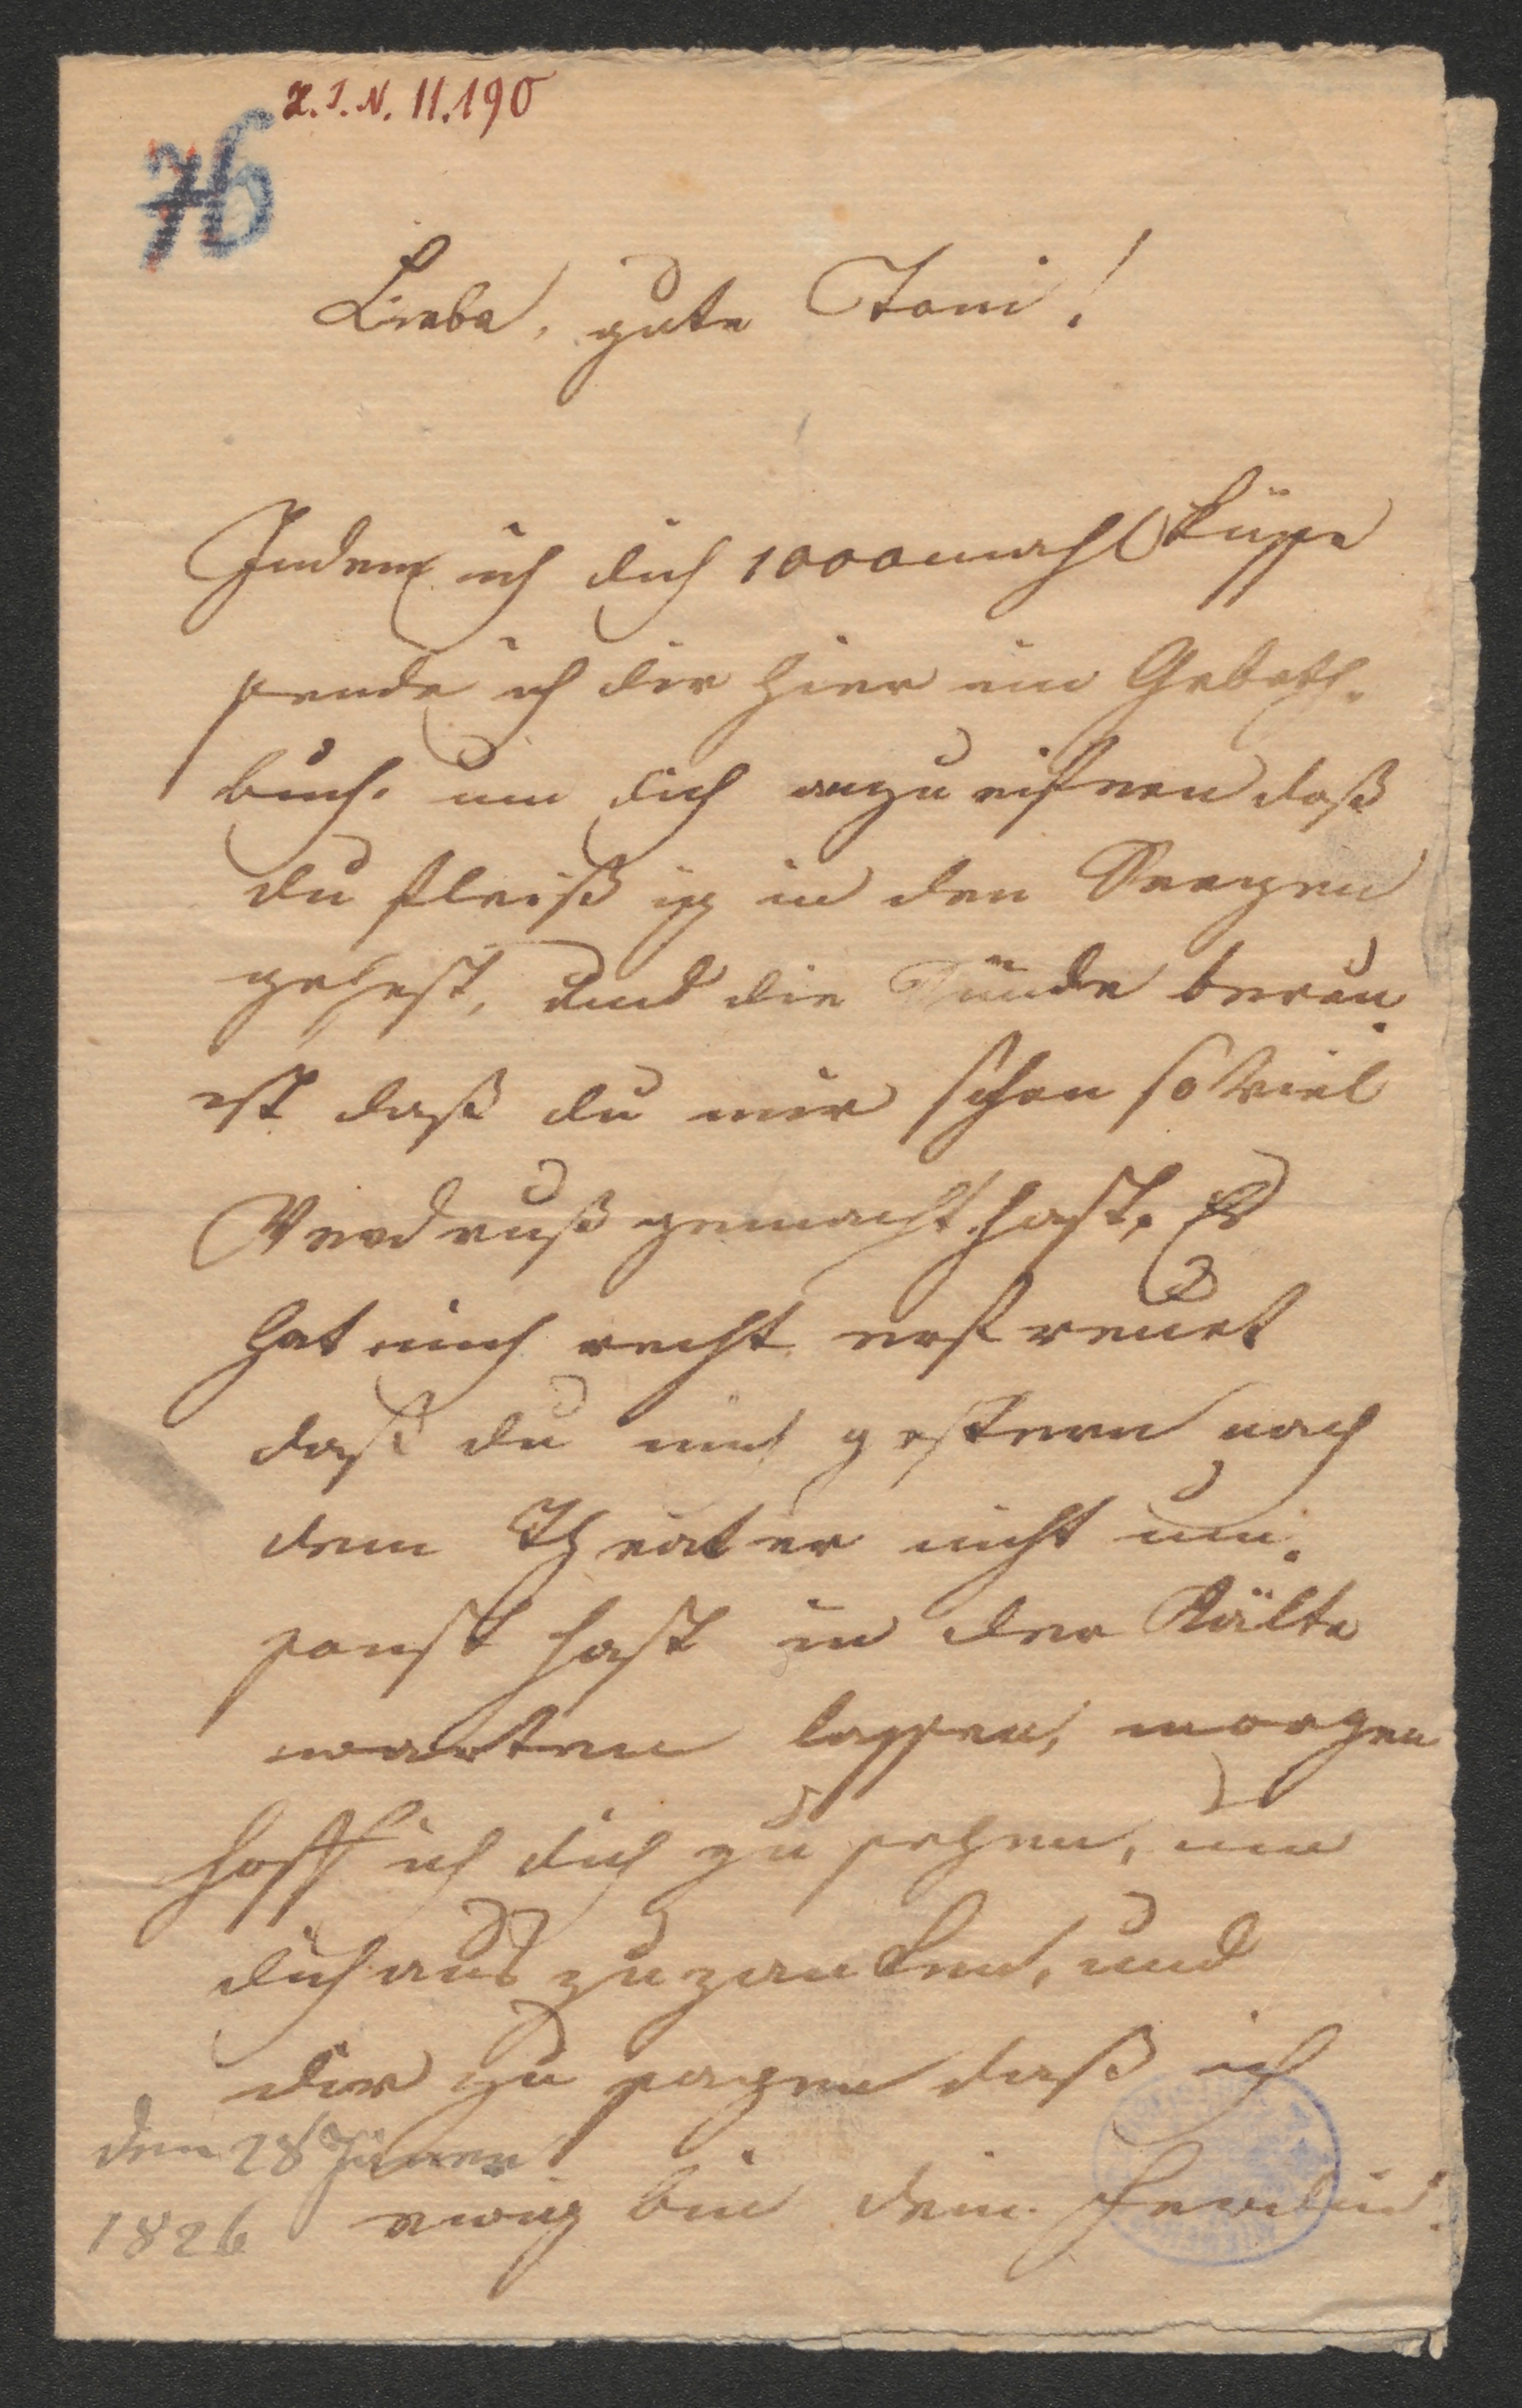 I.N. 11.190
76
Liebe, gute Toni!
Indem ich dich 1000mahl küsse
sende ich dir hier ein Gebeth-
buch. um dich anzueifern daß
du fleißig in den Seegen
gehest, und die Sünde bereu-
est daß du mir schon so viel
Verdruß gemacht hast. Es
hat mich recht erfreuet
daß du mich gestern nach
dem Theater nicht um-
sonst hast in der Kälte
warten lassen, morgen
hoff ich dich zu sehen, um
dich auszuzanken, und
dir zu sagen daß ich
ewig bin dein Ferdinand.
den 28 Jäner
1826